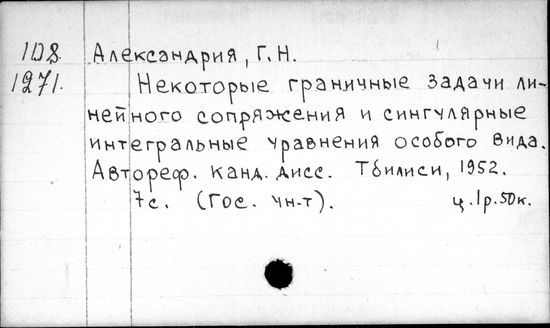 1D8. Александрия, Г.Н.
1271. Некоторые граничные задачи ли-
нейного сопряжения и сингулярные
интегральные уравнения особого вида.
Автореф. канд. дисс. Тбилиси, 1952.
7с. (Гос. ун-т). ц. 1р. 50к.